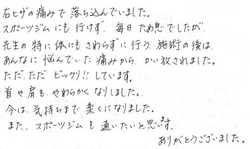 右ヒザの痛みで落ち込んでいました。
スポーツジムにも行けず、毎日ため息でしたが、
先生の特に体にもさわらずに行う施術の後は、
あんなに悩んでいた痛みから、かい放されました。
ただ、ただビックリ!!しています。
首や肩も、やわらかくなりました。
今は、気持ちまで楽になりました。
また、スポーツジムも通いたいと思います。
ありがとうございました。